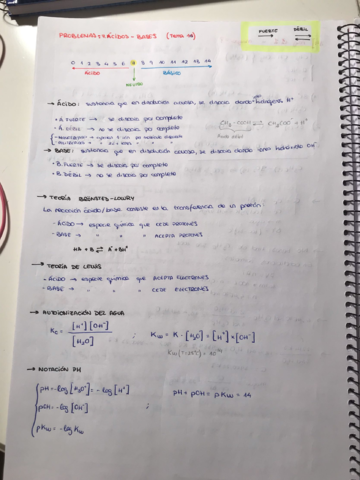 PROBLEMAS ÁCIDOS - BASES (Tema
FUERTE → DÉBIL ⇌
0 1 2 3 4 5 6 7 8 9 10 11 12 13 14
ÁCIDO BÁSICO
NEUTRO
→ ÁCIDO: sustancia que en disolución acuosa, se disocia dando hidrógenos H⁺
· A. FUERTE → se disocia por completo
· A. DÉBIL → no se disocia por completo
CH₃-COOH ⇌ CH₃COO⁻ + H⁺
→ BASE: sustancia que en disolución acuosa, se disocia dando iones hidróxido OH⁻
· B. FUERTE → se disocia por completo
· B. DÉBIL → no se disocia por completo
→ TEORÍA BRÖNSTED-LOWRY
La reacción ácido/base consiste en la transferencia de un protón:
- ÁCIDO → especie química que CEDE PROTONES
- BASE → " " " ACEPTA PROTONES
HA + B ⇌ A⁻ + BH⁺
→ TEORÍA DE LEWIS
- ÁCIDO → especie química que ACEPTA ELECTRONES
- BASE → " " " CEDE ELECTRONES
→ AUTOIONIZACIÓN DEL AGUA
Kc = [H⁺] [OH⁻] / [H₂O] ; Kw = K · [H₂O] = [H⁺] × [OH⁻]
→ NOTACIÓN PH
pH = -log [H₃O⁺] = -log [H⁺] pH + pOH = pKw = 14
pOH = -log [OH⁻] ;
pKw = -log Kw